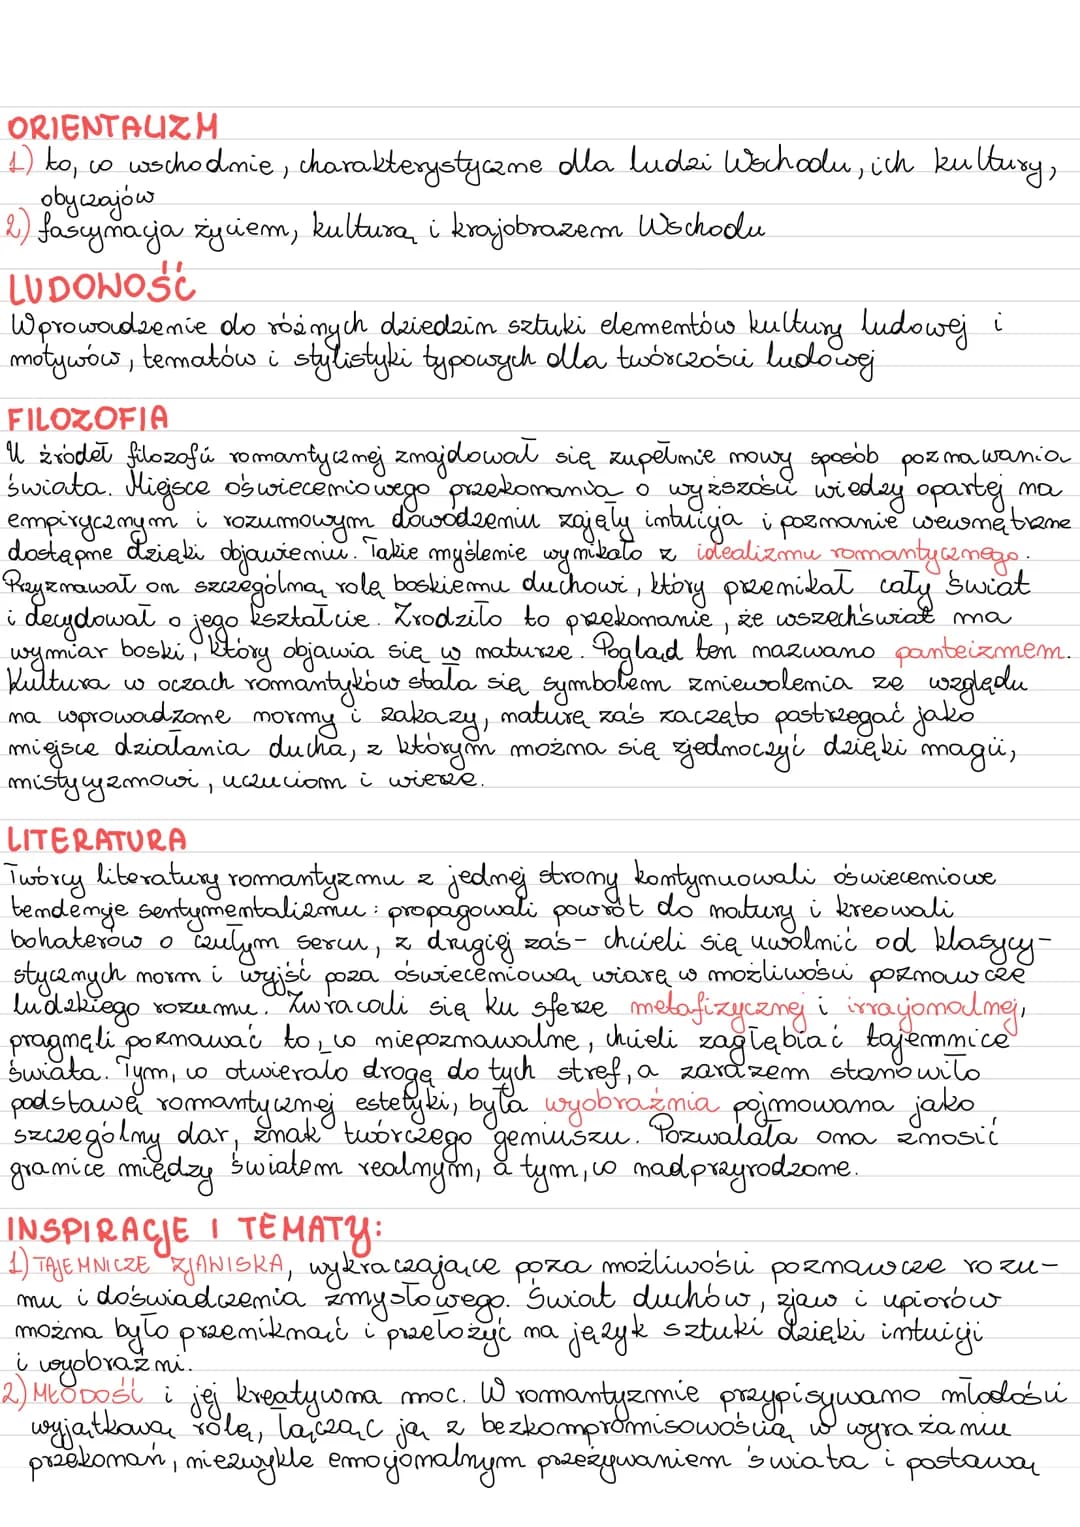 ORIENTALIZM
1) to, co wschodnie, charakterystyczne dla ludzi Wschodu, ich kultury,
obyczajów
2) fascynacja życiem, kulturą i krajobrazem Wschodu
LUDOWOŚĆ
Wprowadzenie do różnych dziedzin sztuki elementów kultury ludowej i
motywów, tematów i stylistyki typowych dla twórczości ludowej
FILOZOFIA
U źródeł filozofii romantycznej znajdował się zupełnie nowy sposób poznawania
świata. Miejsce oświeceniowego przekonania o wyższości wiedzy opartej na
empirycznym i rozumowym dowodzeniu zajęły intuicja i poznanie wewnętrzne
dostępne dzięki objawieniu. Takie myślenie wynikało z idealizmu romantycznego.
Przyznawał on szczególną rolę boskiemu duchowi, który przenikał cały świat
i decydował o jego kształcie. Zrodziło to przekonanie, że wszechświat ma
wymiar boski, który objawia się w naturze. Pogląd ten nazwano panteizmem.
Kultura w oczach romantyków stała się symbolem zniewolenia ze względu
na wprowadzone normy i zakazy, naturę zaś zaczęto postrzegać jako
miejsce działania ducha, z którym można się zjednoczyć dzięki magii,
mistycyzmowi, uczuciom i wierze.
LITERATURA
Twórcy literatury romantyzmu z jednej strony kontynuowali oświeceniowe
tendencje sentymentalizmu: propagowali powrót do natury i kreowali
bohaterów o czułym sercu, z drugiej zaś - chcieli się uwolnić od klasycy-
stycznych norm i wyjść poza oświeceniową wiarę w możliwości poznawcze
ludzkiego rozumu. Zwracali się ku sferze metafizycznej i irracjonalnej,
pragnęli poznawać to, co niepoznawalne, chcieli zagłębiać tajemnice
świata. Tym, co otwierało drogę do tych stref, a zarazem stanowiło
podstawę romantycznej estetyki, była wyobraźnia pojmowana jako
szczególny dar, znak twórczego geniuszu. Pozwalała ona znosić
granice między światem realnym, a tym, co nadprzyrodzone.
INSPIRACJE I TEMATY:
1) TAJEMNICZE ZJAWISKA, wykraczające poza możliwości poznawcze rozu-
mu i doświadczenia zmysłowego. Świat duchów, zjaw i upiorów
można było przeniknąć i przełożyć na język sztuki dzięki intuicji
i wyobraźni.
2) MŁODOŚĆ i jej kreatywna moc. W romantyzmie przypisywano młodości
wyjątkową rolę, łącząc ją z bezkompromisowością w wyrażaniu
przekonań, niezwykle emocjonalnym przeżywaniem świata i postawą